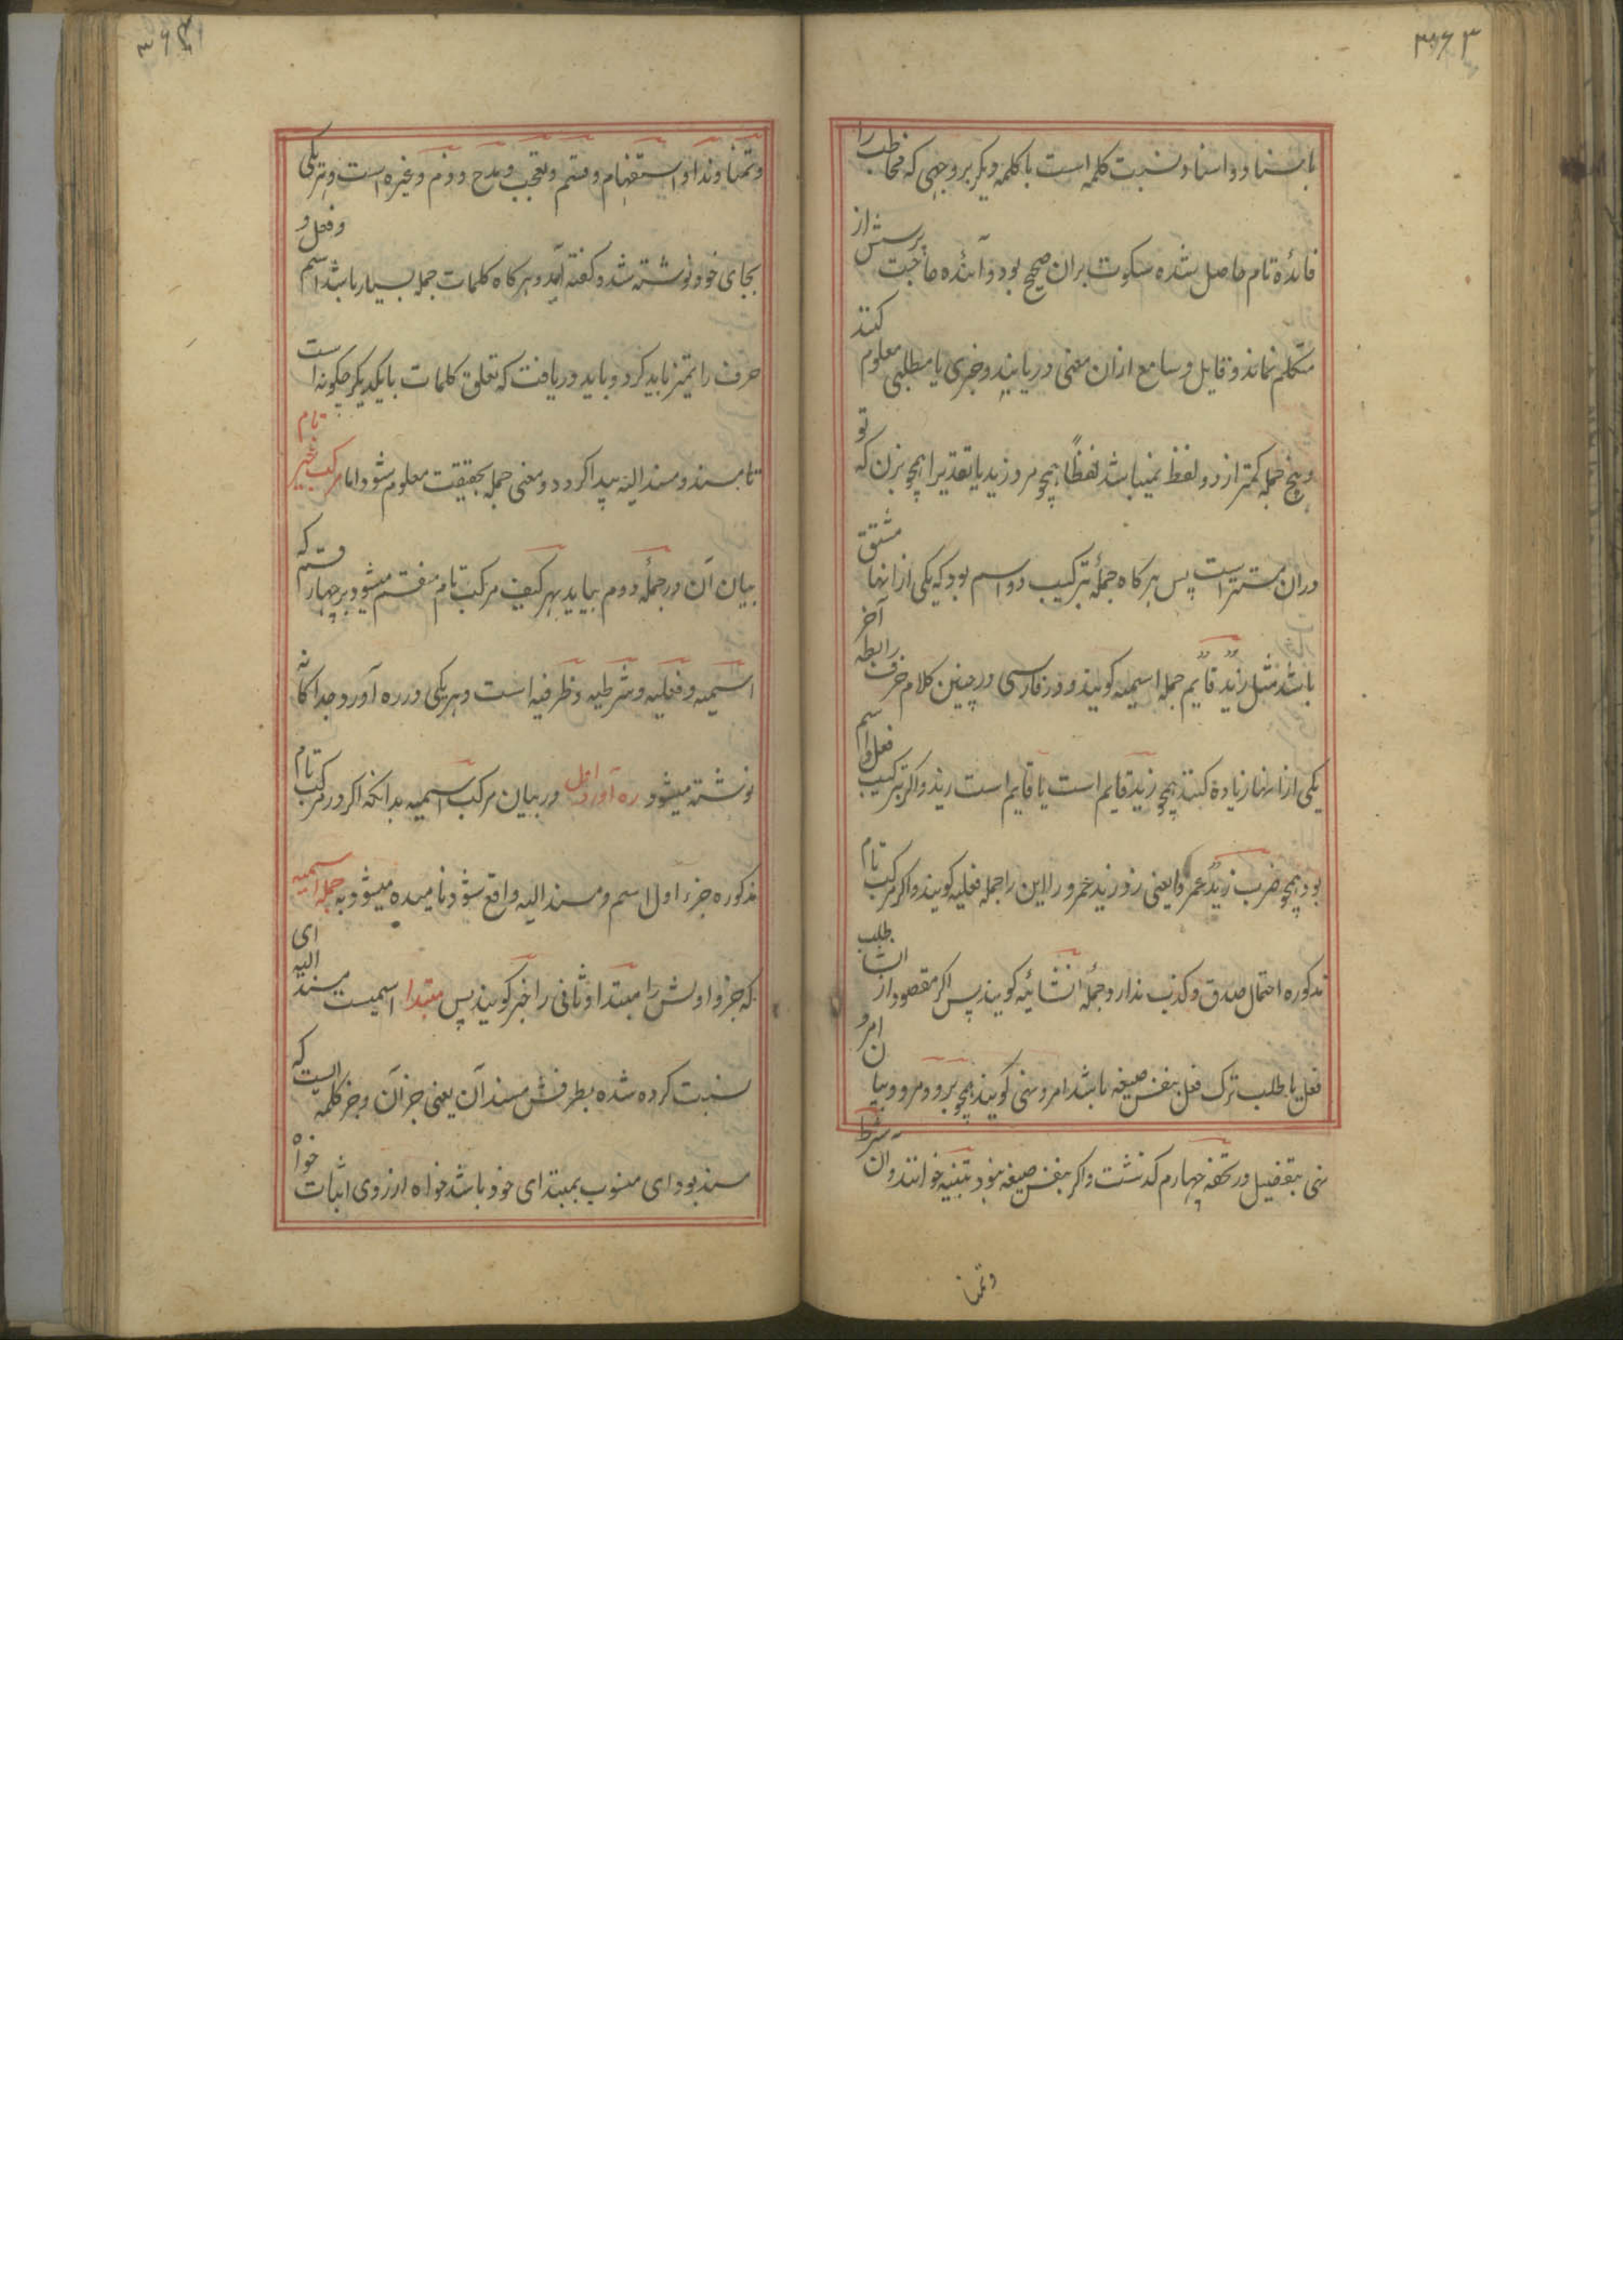 ۳۶۳
باسناد و اسناد نسبت کلمه است با کلمه دیگر بر وجهی که مخاطب را
فائدۀ تام حاصل شده سکوت بران صحیح بود و آینده حاجت پرسش از
متکلم نماند و قایل و سامع ازان معنی دریابند و خبری یا مطلبی معلوم کنند
و هیچ جمله کمتر از دو لفظ نمیباشد لفظاً همچو مرد زید یا تقدیرا همچو بزن که تو
دران مستتر است پس هرکاه جملۀ بترکیب دو اسم بود که یکی از انها مشتق
باشد مثل زیدٌ قایمٌ جمله اسمیه کویند و در فارسی در چنین کلام حرف رابطه آخر
یکی از انها زیاده کنند همچو زید قایم است یا قایم است زید و اکر بترکیب فعل و اسم
بود همچو ضرب زیدٌ عمروا یعنی زد زید عمرو را این را جمله فعلیه کویند و اکر مرکب تام
مذکوره احتمال صدق و کذب ندارد جملۀ انشائیه کویند پس اکر مقصود از انشا طلب
فعل یا طلب ترک فعل بنفس صیغه باشد امر و نهی کویند همچو برو و مرو و بیان امر و
نهی بتفضیل در تحفه چهارم کذشت و اکر بنفس صیغه نبود تنبیه خوانند و ان شرط
و تمنا
۳۶۴
و تمنا و ندا و استفهام و قسم و تعجب و مدح و ذم و غیره است و هر یکی
بجای خود نوشته شد و کفته آید و هرکاه کلمات جمله بسیار باشد اسم و فعل و
حرف را تمیز باید کرد و باید دریافت که تعلق کلمات با یکدیکر چکونه است
تا مسند و مسند الیه پیدا کردد و معنی جمله بحقیقت معلوم شود اما مرکب غیر تام
بیان آن در جملۀ دوم بیاید بهر کیف مرکب تام منقسم میشود بر چهار قسم که
اسمیه و فعلیه و شرطیه و ظرفیه است و هر یکی در ره آورد جداکانه
نوشته میشود ره آورد اول در بیان مرکب اسمیه بدانکه اکر در مرکب تام
مذکوره جزء اول اسم و مسند الیه واقع شود نامیده میشود به جمله اسمیه
که جزو اولش را مبتدا و ثانی را خبر کویند پس مبتدا اسمیست مسند الیه ای
نسبت کرده شده بطرفش مسند آن یعنی جز آن و جز کلمه ایست که
مسند بود ای منسوب بمبتدای خود باشد خواه از روی اثبات خواه